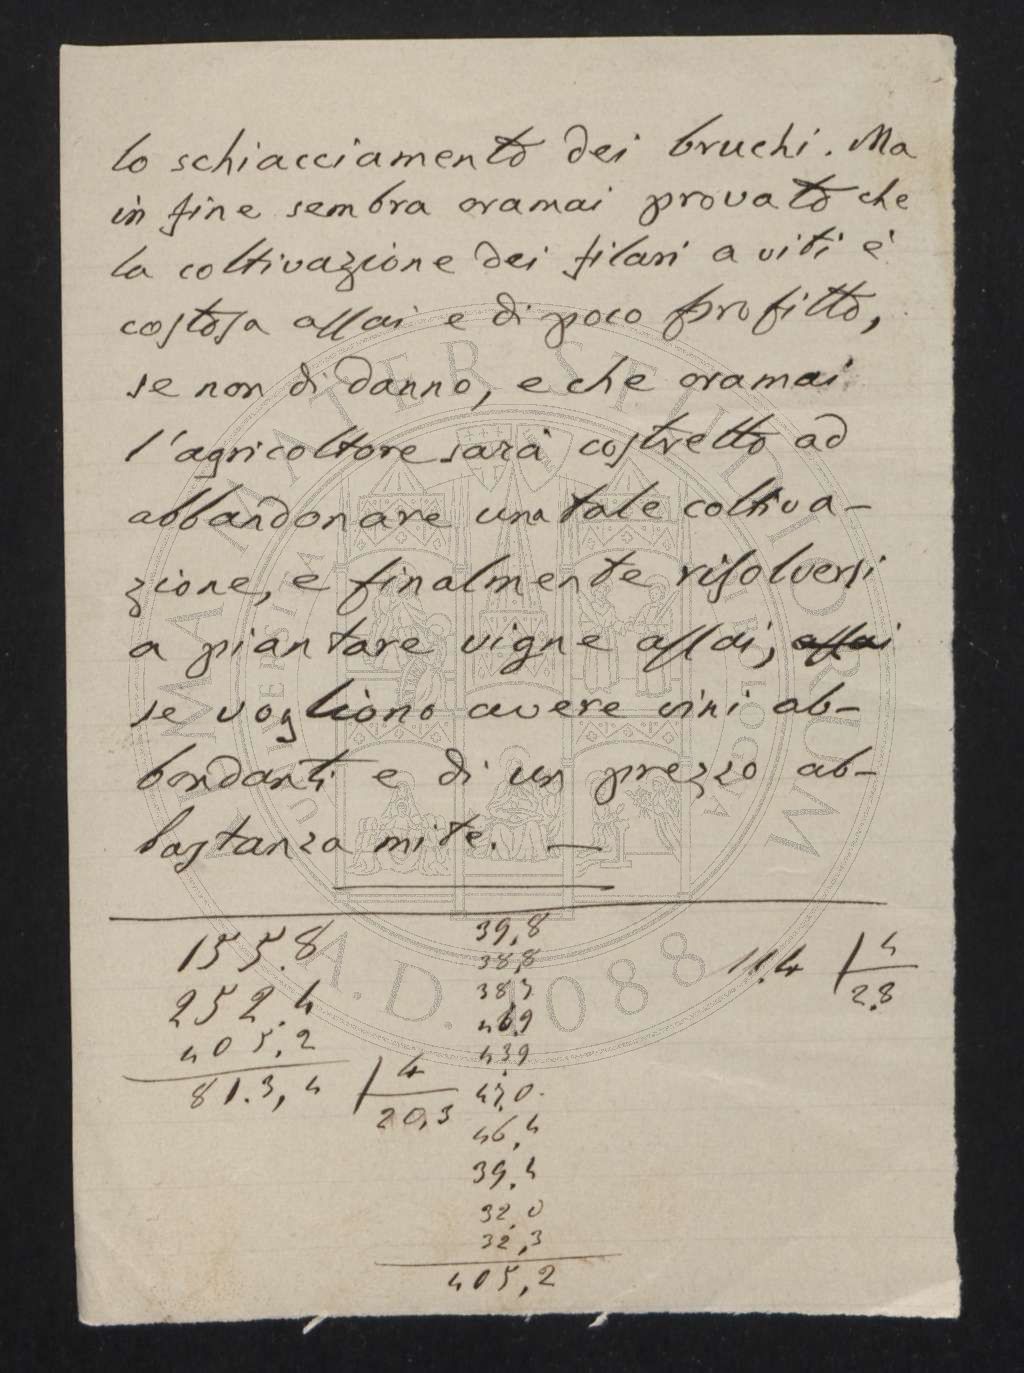 lo schiacciamento dei bruchi. Ma
in fine sembra oramai provato che
la coltivazione dei filari a viti è
costosa assai e di poco profitto,
se non di danno, e che oramai
l'agricoltore sarà costretto ad
abbandonare una tale coltiva-
zione, e finalmente risolversi
a piantare vigne assai, assai
se vogliono avere vini ab-
bondanti e di un prezzo ab-
bastanza mite. —
155.8
252.4
405.2
81.3,4
4
20,3
39,8
38,8
38,5
46,9
43,9
47,0
46,4
39,4
32,0
32,3
405,2
11.4
4
2.8
ALMA MATER STUDIORUM
A.D. 1088